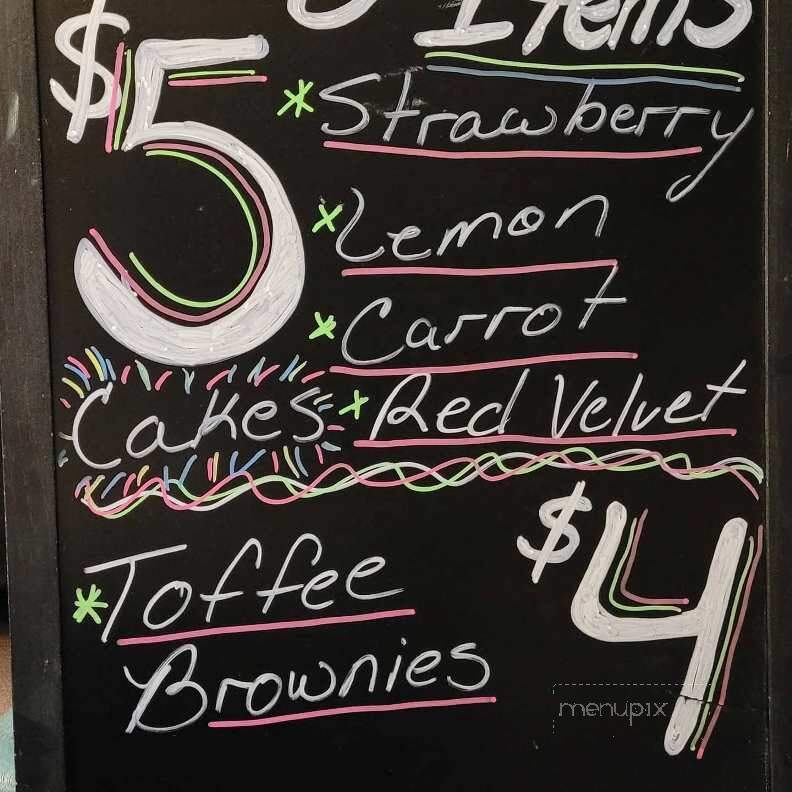 Items
$5
* Strawberry
* Lemon
* Carrot
Cakes * Red Velvet
$4
* Toffee
Brownies
menupix